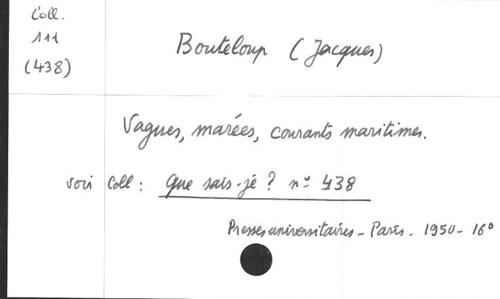 Coll.
111
(438)
Bouteloup (Jacques)
Vagues, marées, courants maritimes.
voir Coll : Que sais-je ? nº 438
Presses universitaires - Paris - 1950 - 16º